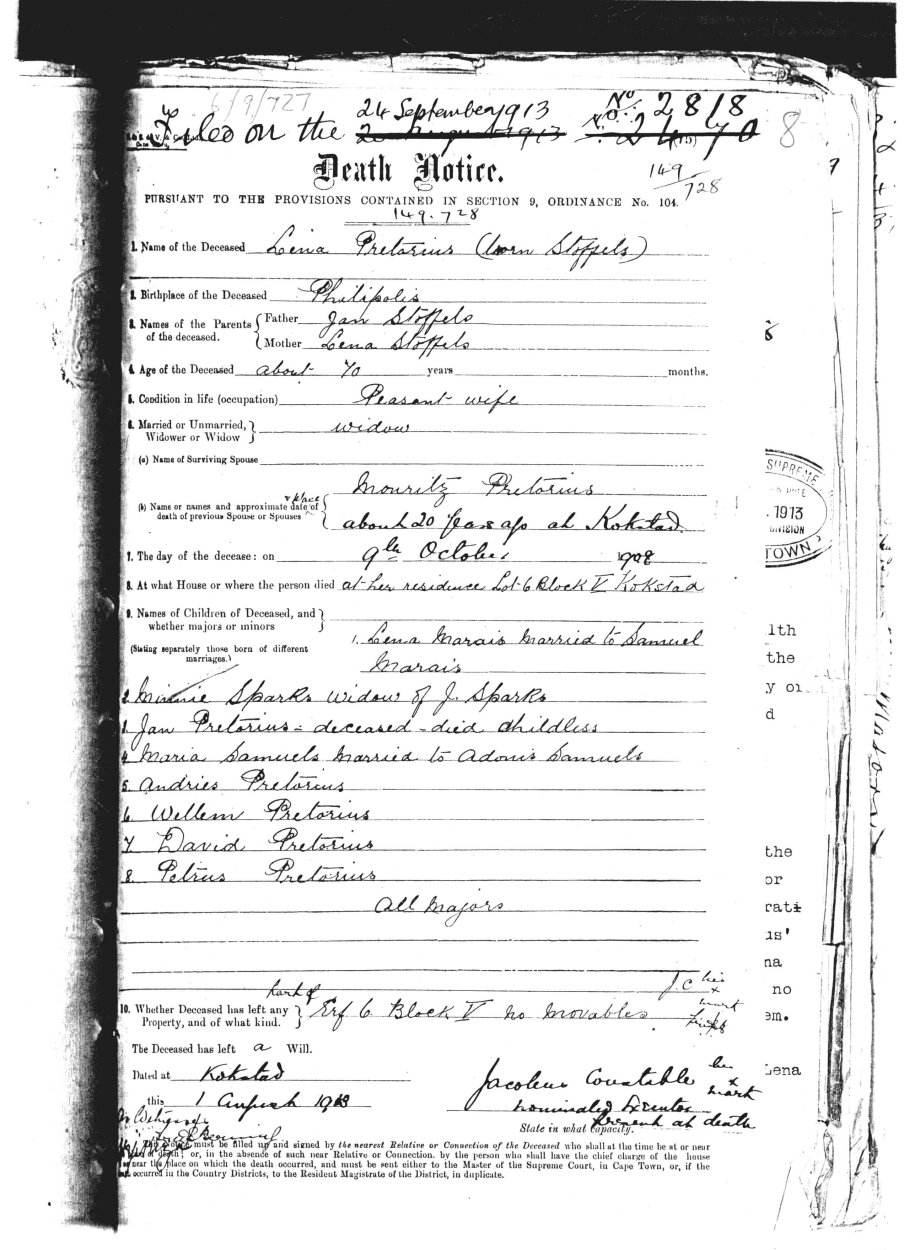 6/9/727
Filed on the 24 September 1913 No. 2818
20 August 1913 No. 2470 8
Death Notice.
149/728
PURSUANT TO THE PROVISIONS CONTAINED IN SECTION 9, ORDINANCE No. 104.
149.728
1. Name of the Deceased Lena Pretorius (born Stoffels)
2. Birthplace of the Deceased Philipolis
3. Names of the Parents of the deceased. { Father Jan Stoffels
Mother Lena Stoffels
4. Age of the Deceased about 70 years months.
5. Condition in life (occupation) Peasant wife
6. Married or Unmarried, Widower or Widow } widow
(a) Name of Surviving Spouse
Mouritz Pretorius
(b) Name or names and approximate date & place of
death of previous Spouse or Spouses about 20 years ago at Kokstad
7. The day of the decease: on 9th October 1908
8. At what House or where the person died at her residence Lot 6 Block V Kokstad
9. Names of Children of Deceased, and
whether majors or minors }
(Stating separately those born of different
marriages.)
1. Lena Marais Married to Samuel
Marais
2 Minnie Sparks widow of J. Sparks
3 Jan Pretorius - deceased - died childless
4 Maria Samuels Married to Adonis Samuels
5 Andries Pretorius
6 Wellem Pretorius
7 David Pretorius
8. Petrus Pretorius
All Majors
J.C his
x
mark
part of
10. Whether Deceased has left any
Property, and of what kind. } Erf 6 Block V no movables
The Deceased has left a Will.
Dated at Kokstad
this 1 August 1913
Jacobus Constable his
x
mark
nominated Executor
present at death
State in what capacity.
This Notice must be filled up and signed by the nearest Relative or Connection of the Deceased who shall at the time be at or near
place of death; or, in the absence of such near Relative or Connection, by the person who shall have the chief charge of the house
or near the place on which the death occurred, and must be sent either to the Master of the Supreme Court, in Cape Town, or, if the
occurred in the Country Districts, to the Resident Magistrate of the District, in duplicate.
SUPREME
1913
DIVISION
TOWN
lth
the
y or
d
the
or
rati
us'
na
no
em.
Lena